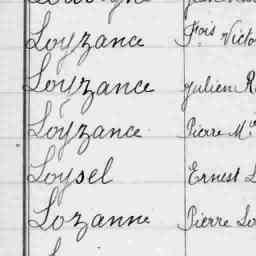 Loyzance fois Victo
Loyzance Julien R
Loyzance Pierre M
Loysel Ernest L
Lozanne Pierre Lo